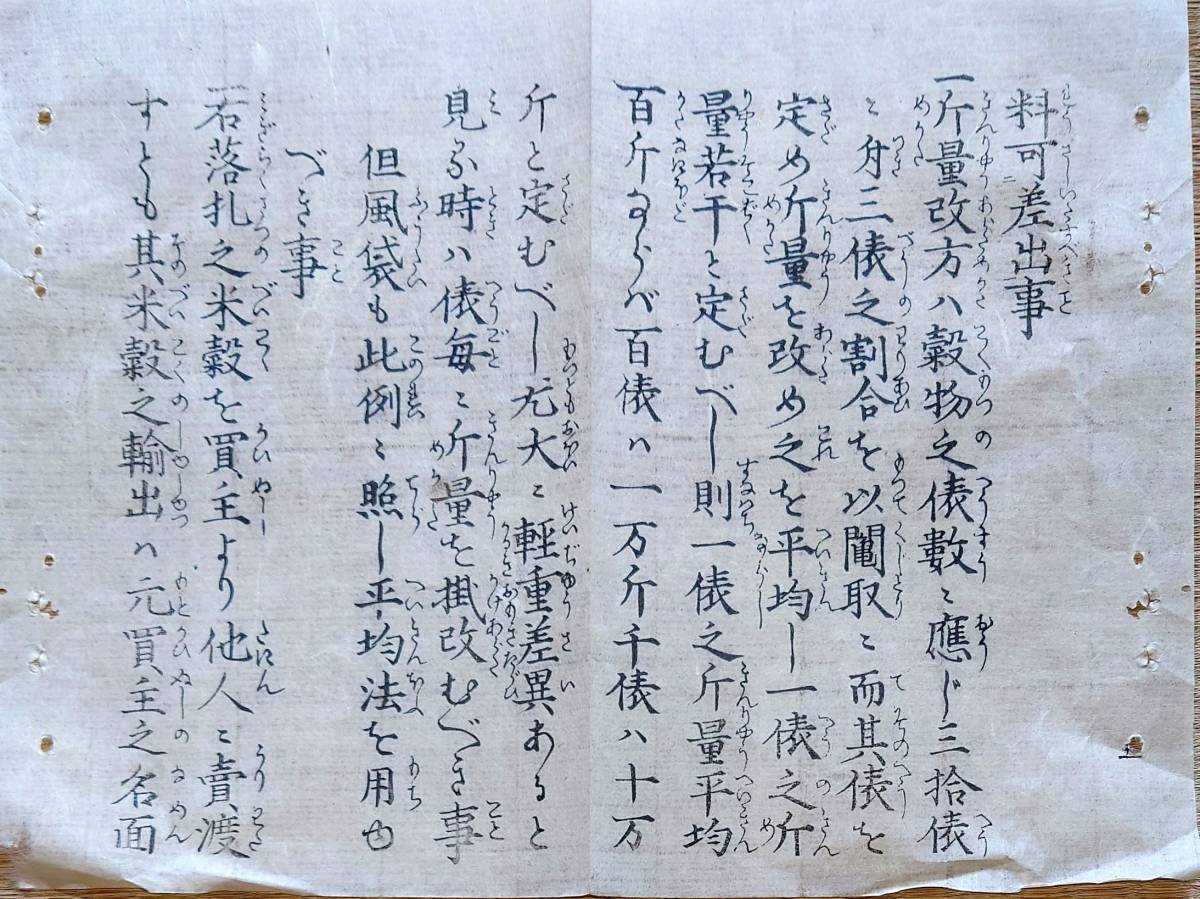 料可差出事
一斤量改方ハ穀物之俵數ニ應じ三拾俵
ニ付三俵之割合を以鬮取ニ而其俵を
定め斤量を改め之を平均し一俵之斤
量若干と定むべし則一俵之斤量平均
百斤ならバ百俵ハ一万斤千俵ハ十万
斤と定むべし尤大ニ輕重差異あると
見る時ハ俵毎ニ斤量を掛改むべき事
但風袋も此例ニ照し平均法を用ゆ
べき事
一若落札之米穀を買主より他人ニ賣渡
すとも其米穀之輸出ハ元買主之名面